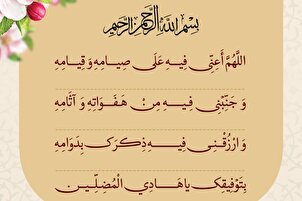 بِسْمِ اللَّهِ الرَّحْمَنِ الرَّحِيمِ
اللَّهُمَّ أَعِنِّي فِيهِ عَلَى صِيَامِهِ وَ قِيَامِهِ
وَ جَنِّبْنِي فِيهِ مِنْ هَفَوَاتِهِ وَ آثَامِهِ
وَ ارْزُقْنِي فِيهِ ذِكْرَكَ بِدَوَامِهِ
بِتَوْفِيقِكَ يَا هَادِيَ الْمُضِلِّينَ